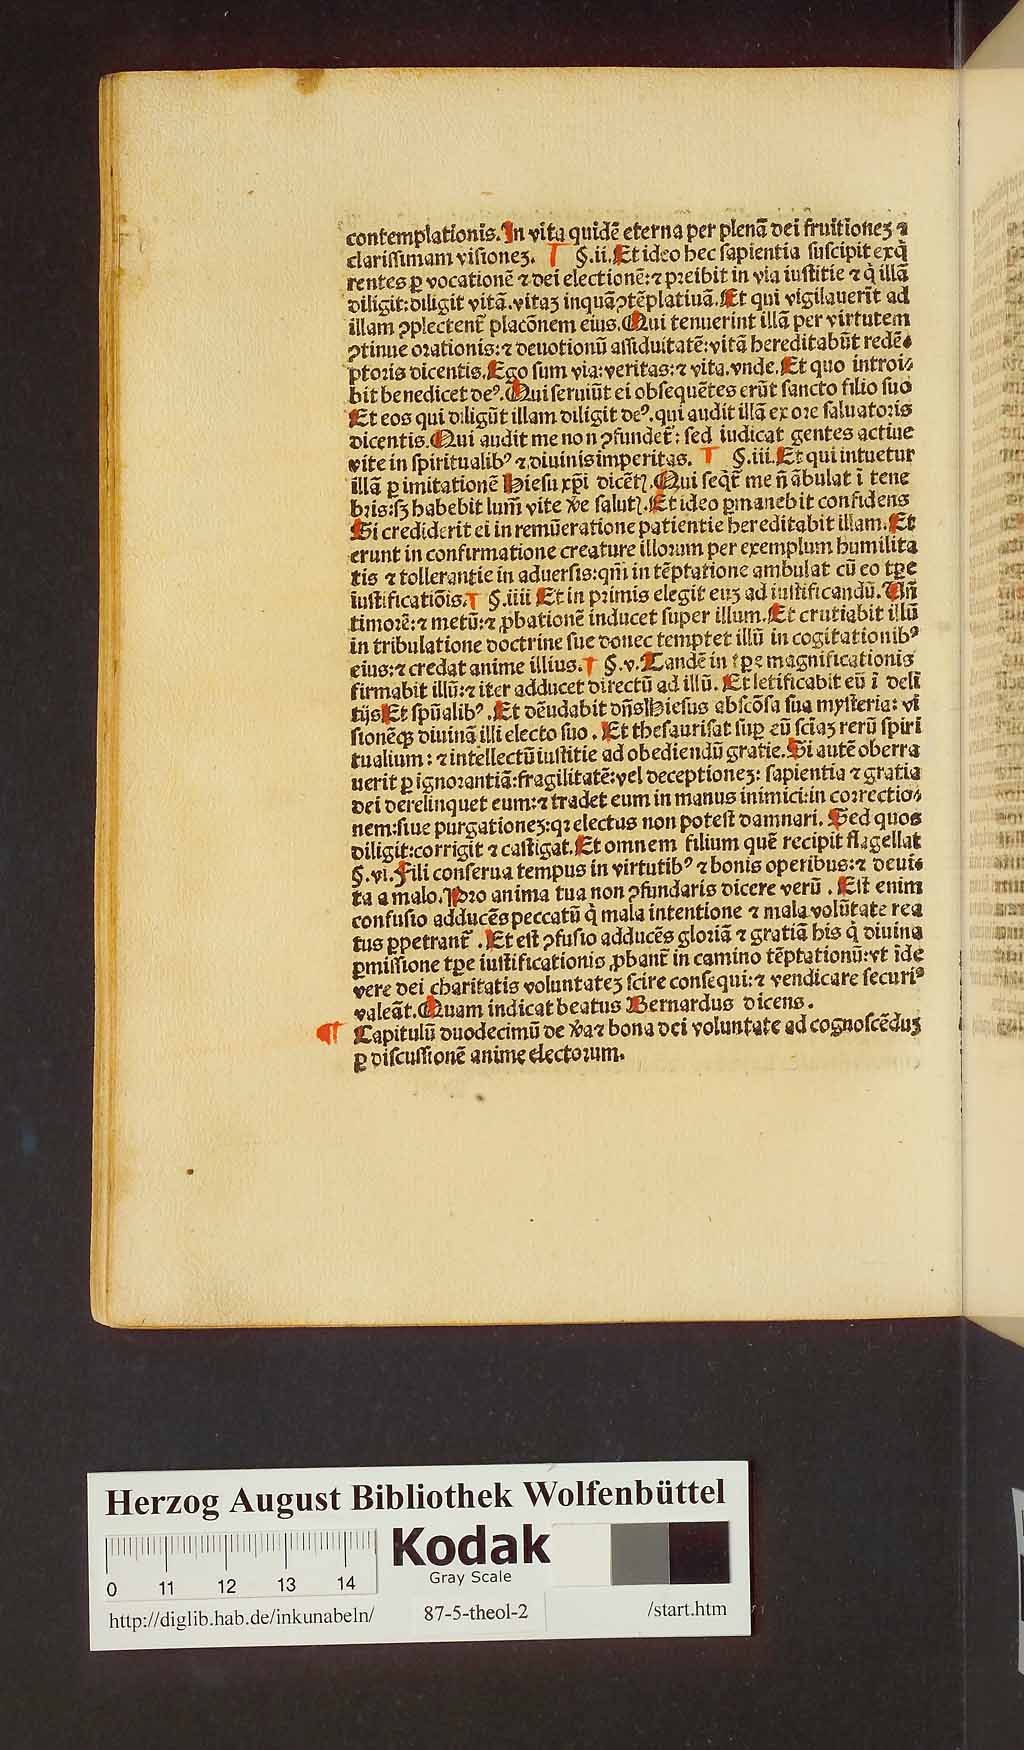 contemplationis. In vita quidē eterna per plenā dei fruitionez ⁊
clarissimam visionez. ¶ §.ii. Et ideo hec sapientia suscipit exq̄
rentes ꝑ vocationē ⁊ dei electionē: ⁊ preibit in via iustitie ⁊ q̇ illā
diligit: diligit vitā. vitaz inquā ꝯtēplatiuā. Et qui vigilauerīt ad
illam ꝯplectent̄ placōnem eius. Qui tenuerint illā per virtutem
ꝯtinue orationis: ⁊ deuotionū assiduitatē: vitā hereditabūt redē⸗
ptoris dicentis. Ego sum via: veritas: ⁊ vita. vnde. Et quo introi⸗
bit benedicet deꝰ. Qui seruiūt ei obsequētes erūt sancto filio suo
Et eos qui diligūt illam diligit deꝰ. qui audit illā ex ore saluatoris
dicentis. Qui audit me non ꝯfundet̄: sed iudicat gentes actiue
vite in spiritualibꝰ ⁊ diuinis imperitas. ¶ §.iii. Et qui intuetur
illā ꝑ imitationē Hiesu xp̄i dicētꝭ. Qui seqt̄ me n̄ ābulat ī tene
bris: sꝫ habebit lum̄ vite v̄e salutꝭ. Et ideo ꝑmanebit confidens
Si crediderit ei in remūeratione patientie hereditabit illam. Et
erunt in confirmatione creature illorum per exemplum humilita
tis ⁊ tollerantie in aduersis: qm̄ in tēptatione ambulat cū eo tꝑe
iustificatiōis. ¶ §.iiii Et in primis elegit euz ad iustificandū. Un̄
timorē: ⁊ metū: ⁊ ꝓbationē inducet super illum. Et crutiabit illū
in tribulatione doctrine sue donec temptet illū in cogitationibꝰ
eius: ⁊ credat anime illius. ¶ §.v. Tandē in tꝑe magnificationis
firmabit illū: ⁊ iter adducet directū ad illū. Et letificabit eū ī deli
tijs Et spūalibꝰ. Et dēudabit dn̄s Hiesus abscōsa sua mysteria: vi
sionēqꝫ diuinā illi electo suo. Et thesaurisat suꝑ eū sciaz rerū spiri
tualium: ⁊ intellectū iustitie ad obediendū gratie. Si autē oberra
uerit ꝑ ignorantiā: fragilitatē: vel deceptionez: sapientia ⁊ gratia
dei derelinquet eum: ⁊ tradet eum in manus inimici: in correctio⸗
nem: siue purgationez: qꝛ electus non potest damnari. Sed quos
diligit: corrigit ⁊ castigat. Et omnem filium quē recipit flagellat
§.vi. Fili conserua tempus in virtutibꝰ ⁊ bonis operibus: ⁊ deui⸗
ta a malo. Pro anima tua non ꝯfundaris dicere verū. Est enim
confusio adducēs peccatū q̇ mala intentione ⁊ mala volūtate rea
tus ꝑpetrant̄. Et est ꝯfusio adducēs gloriā ⁊ gratiā his q̇ diuina
ꝑmissione tꝑe iustificationis ꝓbant̄ in camino tēptationū: vt īde
vere dei charitatis voluntatez scire consequi: ⁊ vendicare securiꝰ
valeāt. Quam indicat beatus Bernardus dicens.
¶ Capitulū duodecimū de v̄a ⁊ bona dei voluntate ad cognoscēduz
ꝑ discussionē anime electorum.
Herzog August Bibliothek Wolfenbüttel
Kodak
Gray Scale
0 11 12 13 14
http://diglib.hab.de/inkunabeln/ 87-5-theol-2 /start.htm